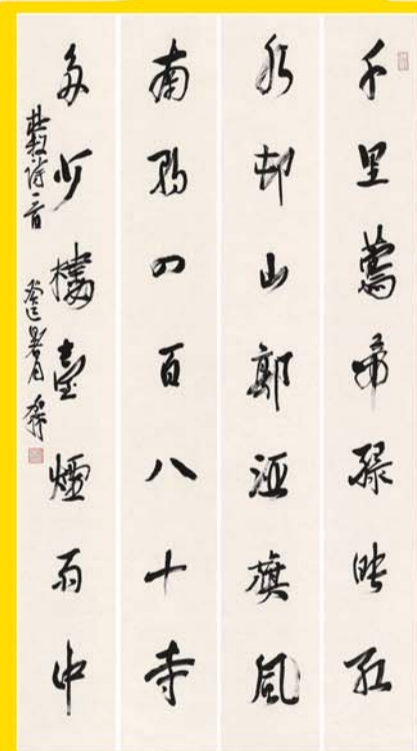 千里鶯啼緑映紅
水邨山郭酒旗風
南朝四百八十寺
多少樓臺煙雨中
杜牧詩一首
癸巳暑月